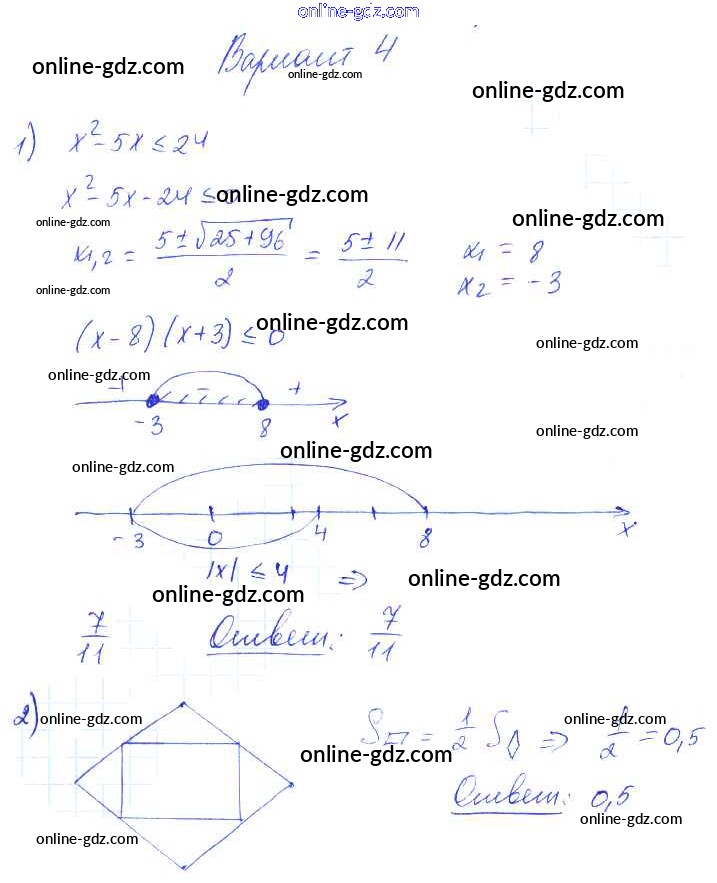 online-gdz.com
Вариант 4
online-gdz.com
online-gdz.com
online-gdz.com
1) x² - 5x ≤ 24
x² - 5x - 24 ≤ 0
online-gdz.com
online-gdz.com
online-gdz.com
x₁,₂ = (5 ± √(25 + 96))/2 = (5 ± 11)/2 x₁ = 8
x₂ = -3
online-gdz.com
(x - 8)(x + 3) ≤ 0
online-gdz.com
online-gdz.com
online-gdz.com
+ - +
-3 8 x
online-gdz.com
online-gdz.com
online-gdz.com
-3 0 4 8 x
|x| ≤ 4 ⇒
online-gdz.com
online-gdz.com
7/11 Ответ: 7/11
2) S▱ = 1/2 S◊ ⇒ 1/2 = 0,5
online-gdz.com
online-gdz.com
online-gdz.com
Ответ: 0,5
online-gdz.com
online-gdz.com